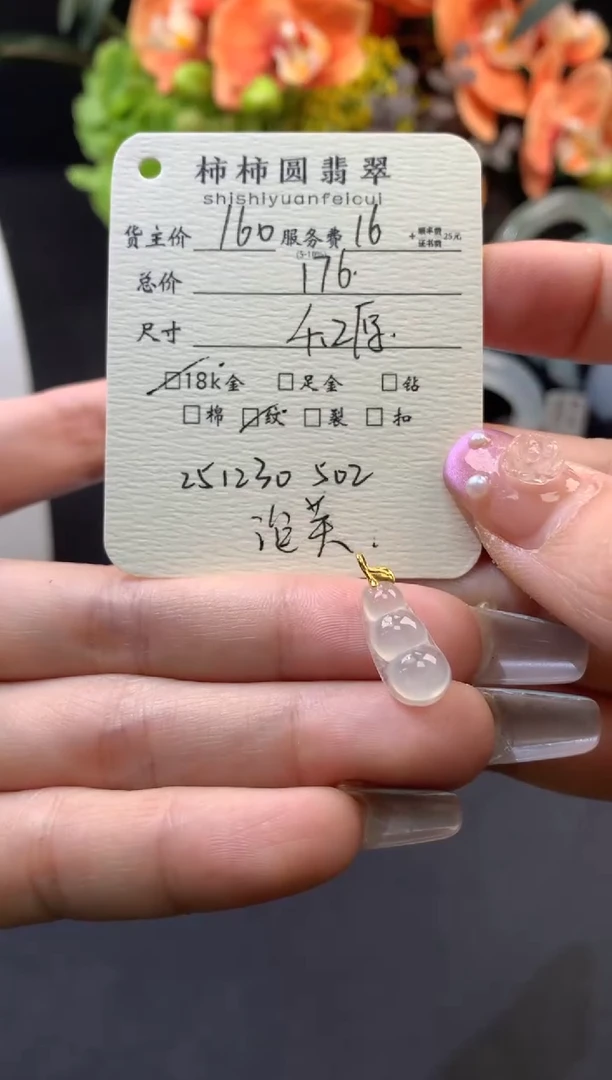 柿柿圆翡翠
shishiyuanfeicui
货主价 160 服务费 16 + 顺丰费 证书费 25元
(5-10%)
总价 176.
尺寸 4.2厚.
☑18k金 □足金 □钻
□棉 ☑纹 □裂 □扣
251230 502
泡芙.